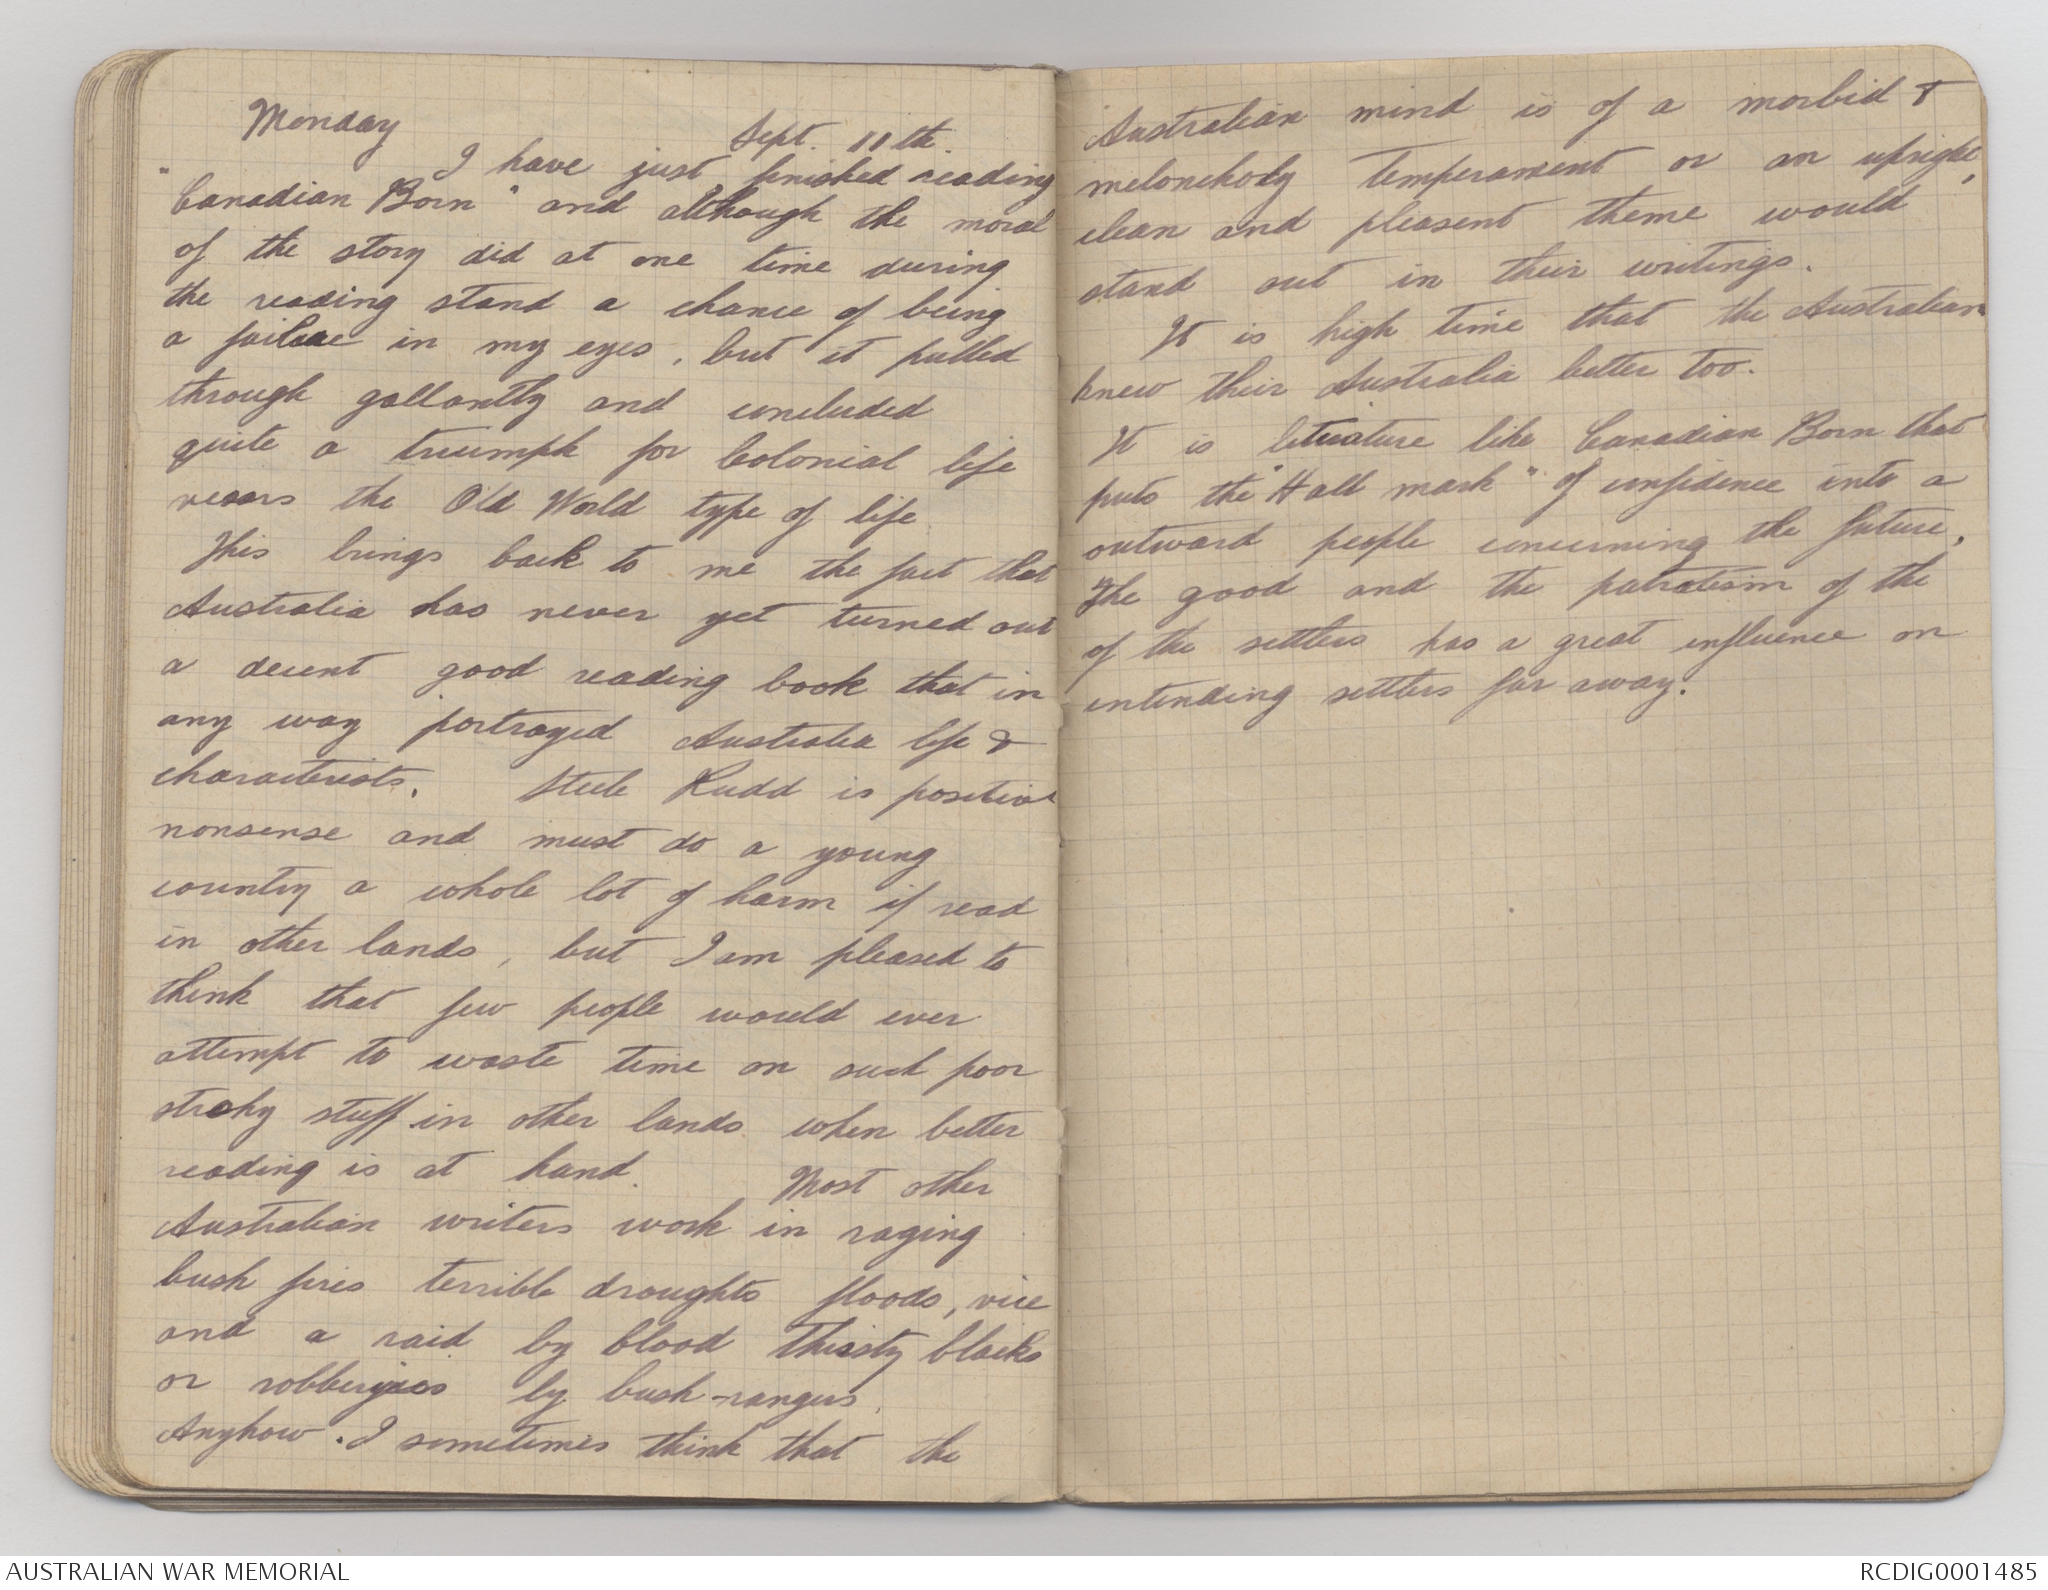 Monday Sept. 11th.
I have just finished reading
"Canadian Born" and although the moral
of the story did at one time during
the reading stand a chance of being
a failure in my eyes, but it pulled
through gallantly and concluded
quite a triumph for Colonial life
versus the Old World type of life
This brings back to me the fact that
Australia has never yet turned out
a decent good reading book that in
any way portrayed Australia life &
characterists. Steele Rudd is positive
nonsense and must do a young
country a whole lot of harm if read
in other lands, but I am pleased to
think that few people would ever
attempt to waste time on such poor
stuff in other lands when better
reading is at hand. Most other
Australian writers work in raging
bush fires terrible droughts floods, vice
and a raid by blood thirsty blacks
or by bush-rangers.
Anyhow. I sometimes think that the
Australian mind is of a morbid &
meloncholy temperament or an upright,
clean and pleasent theme would
stand out in their writings.
It is high time that the Australian
knew their Australia better too.
It is literature like Canadian Born that
puts the "Hall mark" of confidence into a
outward people concerning the future.
The good and the patriotism of the
of the settlers has a great influence on
intending settlers far away.
AUSTRALIAN WAR MEMORIAL
RCDIG0001485